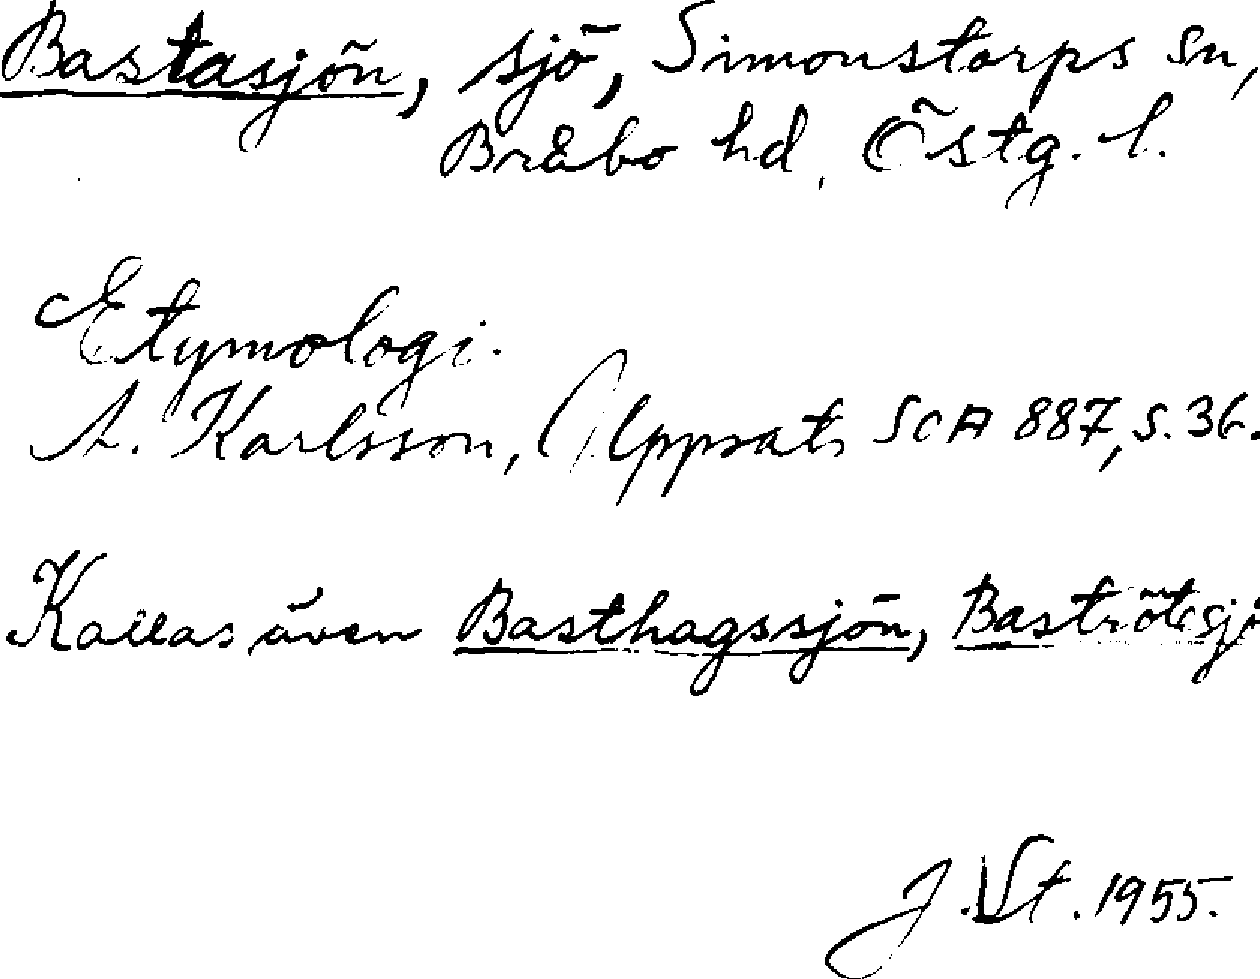 Bastasjön, sjö, Simonstorps sn,
Bråbo hd, Östg. l.
Etymologi.
A. Karlsson, Uppsats SOA 887, s. 36.
Kallas även Basthagssjön, Baströtesjö
J. St. 1955.